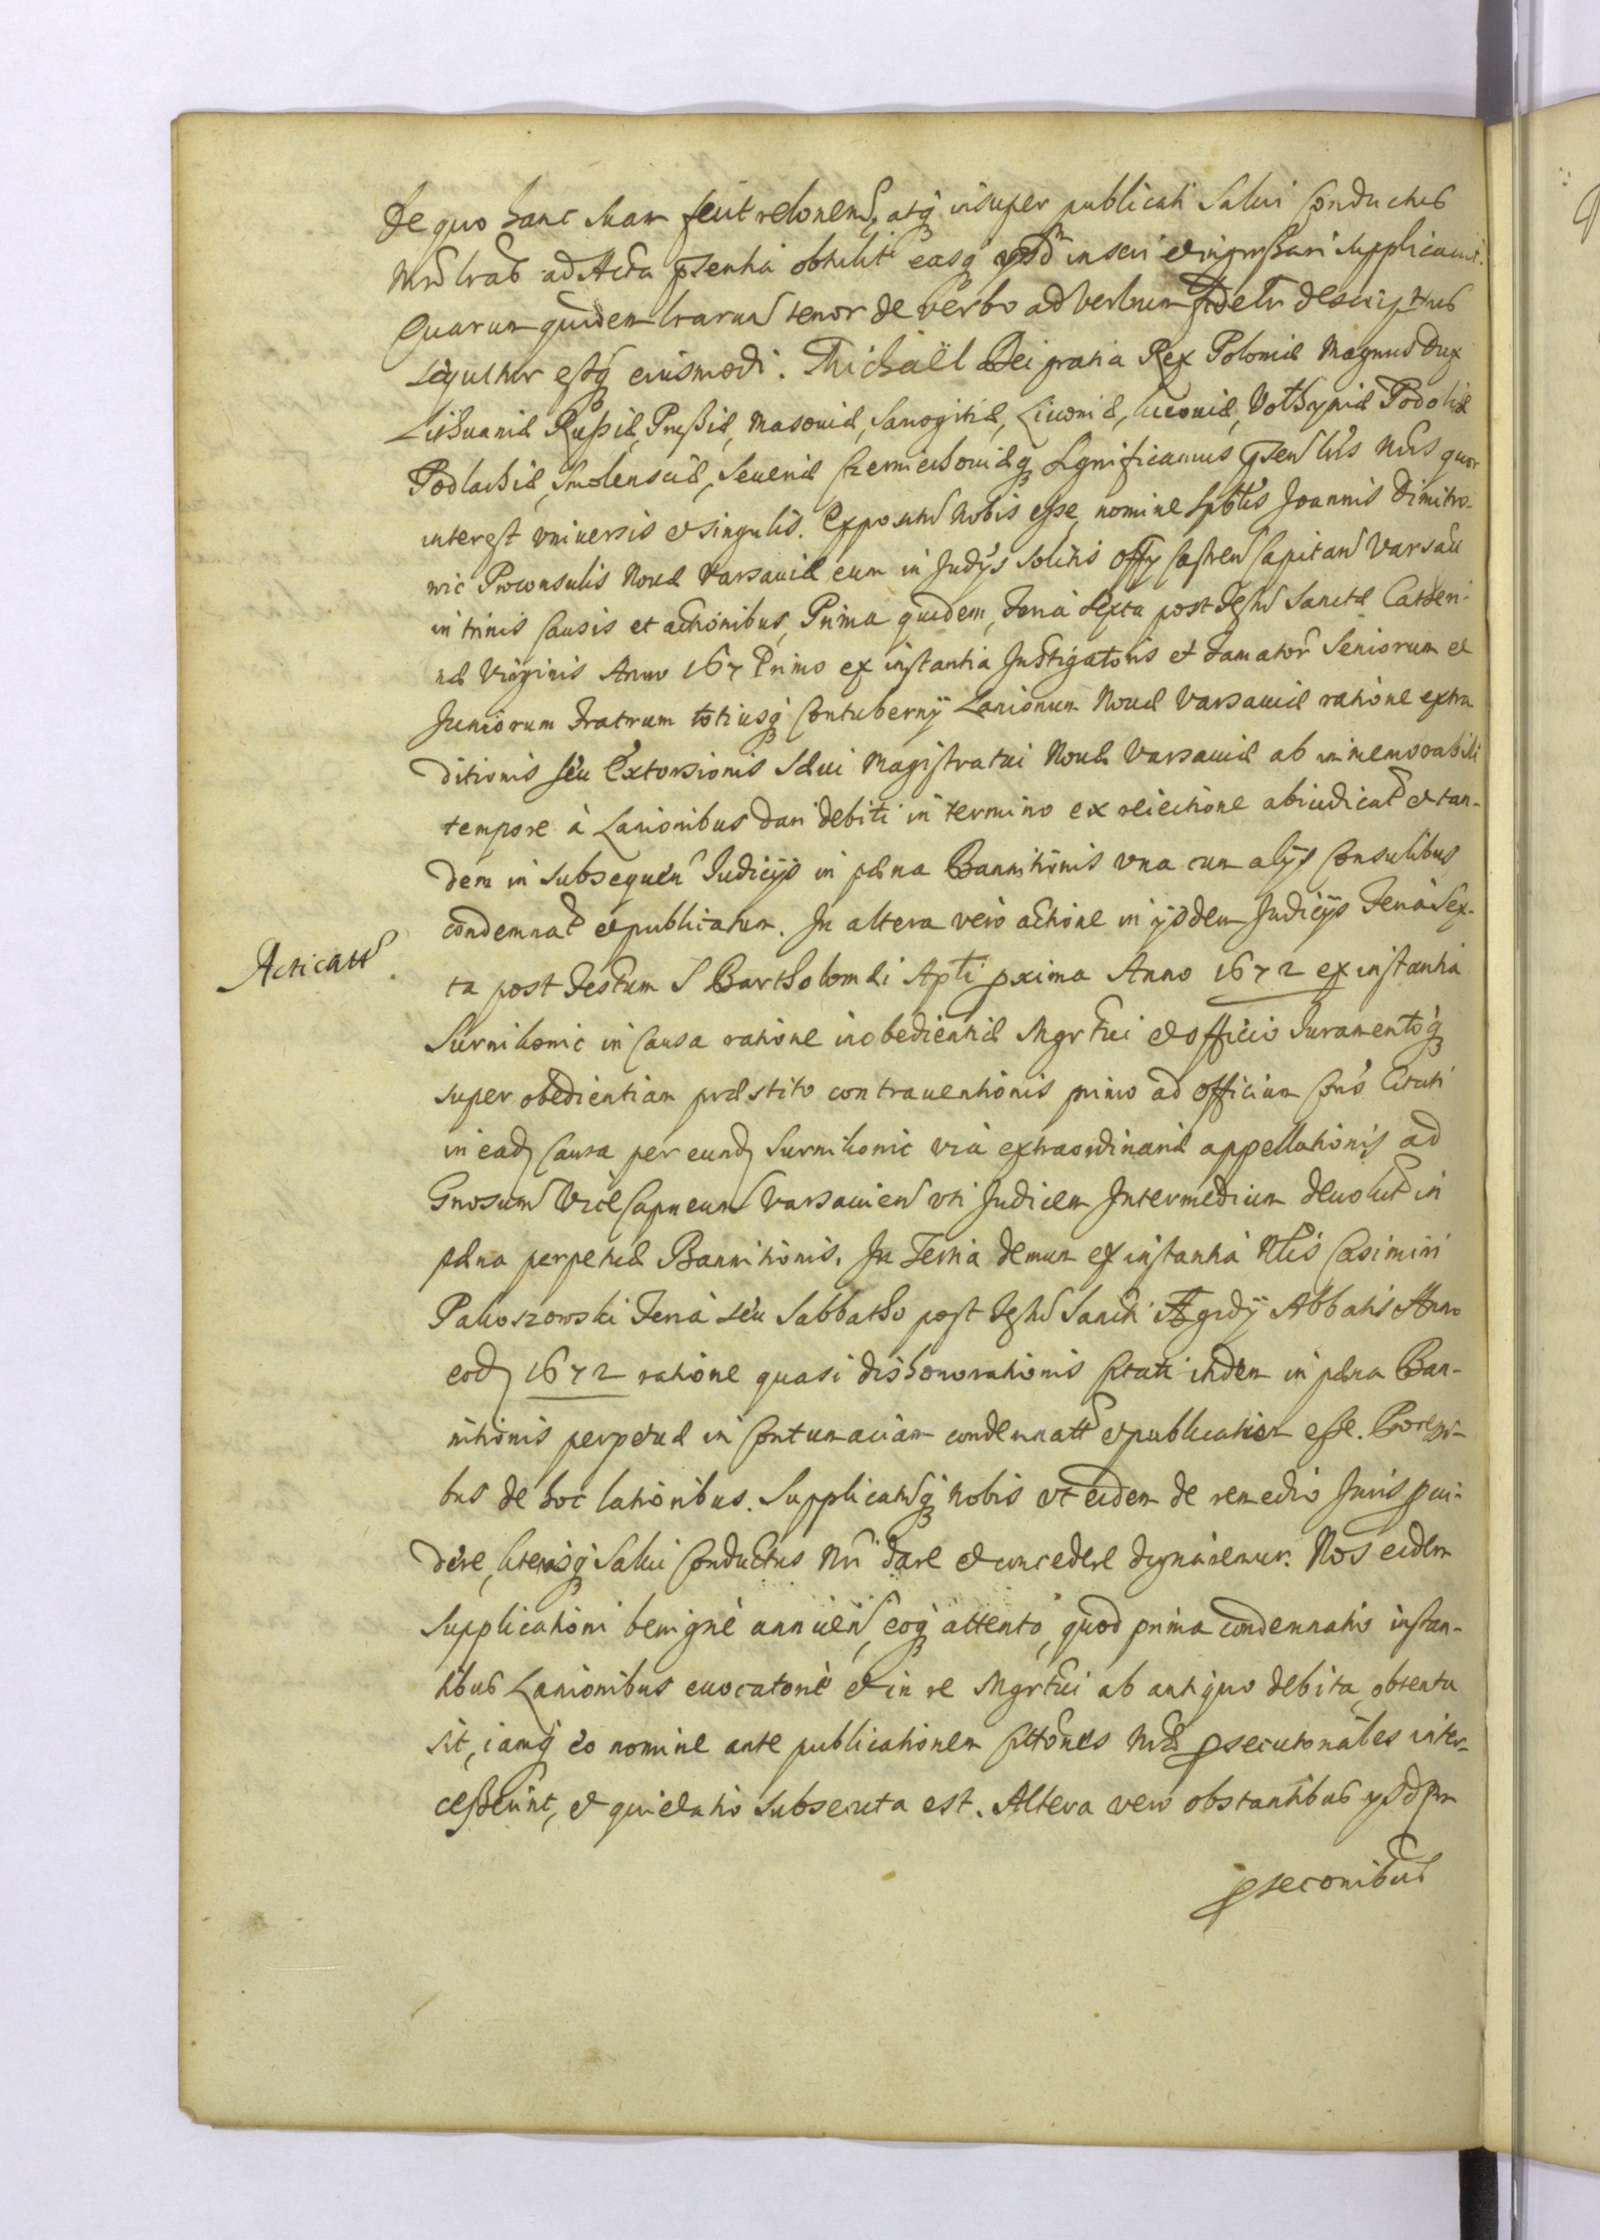 de quo hanc suam fecit relonem, atq insuper publicati Salui Conductus
Nri lras ad Acta psentia obtulit easq ysd inseri et ingrossari supplicauit.
Quarum quidem lrarum tenor de verbo ad verbum fidelr descriptus
sequitur estq eiusmodi. Michaël Dei gratia Rex Poloniæ Magnus Dux
Lithuaniæ Russiæ, Prussiæ, Masouiæ, Samogitiæ, Liuoniæ, Volhyniæ Podoliæ
Podlachiæ, Smolensciæ, Seueriæ Czerniechouiæq Significamus psen lris Nris quor
interest vniuersis et singulis. Expositum Nobis esse, nomine Spblis Joannis Dimitro-
wic Proconsulis Nouæ Varsauiæ eum in Judys Solitis Offy Castren Capitan Varsau
in trinis Causis et actionibus, Prima quidem, Feria Sexta post Festu Sanctæ Catheri-
næ Virginis Anno 167 Primo ex instantia Instigatoris et Famator Seniorum et
Juniorum Fratrum totiusq Contubernÿ Lanionum Nouæ Varsauiæ ratione extra
ditionis seu Extorsionis Salui Magistratui Nouæ Varsauiæ ab immemorabili
tempore à Lanionibus dari debiti in termino ex reiectione abiudicat et tan-
dem in subsequen Judicÿs in pæna Bannitionis vna cum alÿs Consulibus
condemnat et publicatum. In altera vero actione in ÿsdem Judicÿs Feria Sex-
Acticatt
ta post Festum S Bartholomæi Apti pxima Anno 1672 ex instantia
Surnikowic in Causa ratione inobedientiæ Mgrtui et officio Juramentoq
super obedientiam præstito contrauentionis primo ad Officium Cons Citati
in ead Causa per eund Surnikowic via extraordinariæ appellationis ad
Gnosum ViceCapneum Varsauien vti Judicem Intermedium deuolut in
pæna perpetuæ Bannitionis. In Tertia demum ex instantia Nlis Casimiri
Pakoszowski Feria seu Sabbatho post Festu Sancti Ægidÿ Abbatis Anno
eod 1672 ratione quasi dishonorationis Citati itidem in pæna Ban-
nitionis perpetuæ in Contumaciam condemnatt et publicatum esse.
bus de hoc lationibus. Supplicatuq Nobis vt eidem de remedio Juris pui-
dere, literasq Salui Conductus Nri dare et concedere dignaremur. Nos eidem
Supplicationi benigne annuen, eoq attento, quod prima condemnatio instan-
tibus Lanionibus euocatorie et in re Mgrtui ab antiquo debita obtenta
sit, iamq eo nomine ante publicationem Citones Nræ psecutoriales inter-
cesserint, et quietatio subsecuta est. Altera vero obstantibus ysdem
pseconibus